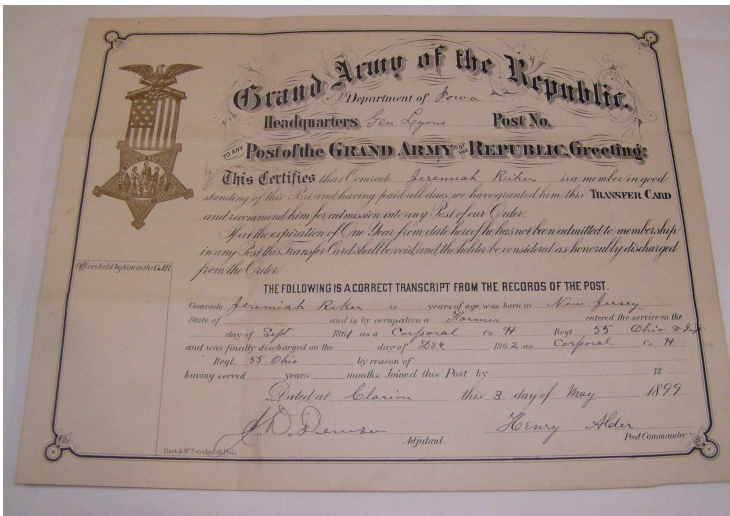 Grand Army of the Republic.
Department of Iowa
Headquarters Gen Lyons Post No.
TO ANY Post of the GRAND ARMY OF THE REPUBLIC, Greeting:
This Certifies that Comrade Jeremiah Riker is a member in good
standing of this Post and having paid all dues, we have granted him this TRANSFER CARD
and recommend him for admission into any Post of our Order.
If at the expiration of One Year from date hereof he has not been admitted to membership
in any Post this Transfer Card shall be void, and the holder be considered as honorably discharged
from the Order.
Offices held by him in the G.A.R.
THE FOLLOWING IS A CORRECT TRANSCRIPT FROM THE RECORDS OF THE POST.
Comrade Jeremiah Riker is years of age, was born in New Jersey
State of and is by occupation a Farmer entered the service on the
day of Sept 1861 as a Corporal Co H Regt 55 Ohio
and was finally discharged on the day of Dec 1862 as Corporal Co H
Regt 55 Ohio by reason of
having served years months. Joined this Post by 18
Dated at Clarion this 3 day of May 1899
J. D. Denison Henry Alder
Adjutant. Post Commander.